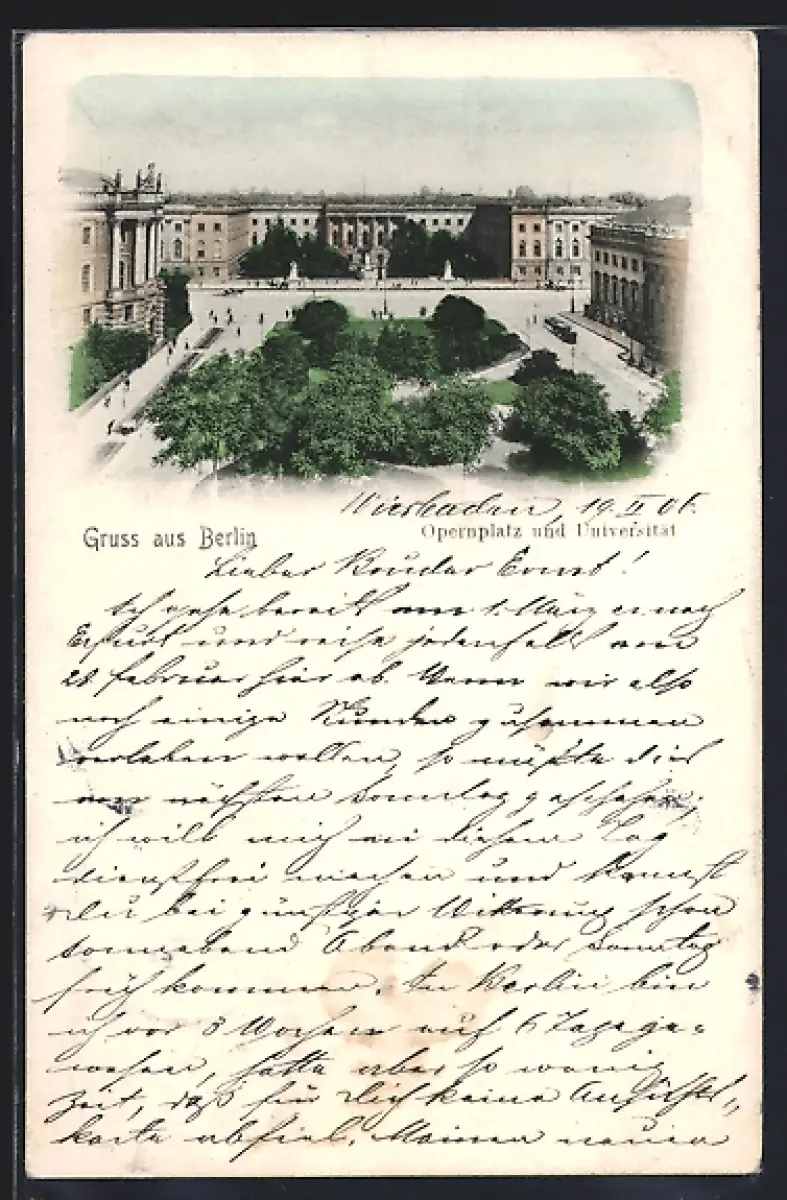 Wiesbaden, 19 II 01.
Gruss aus Berlin
Opernplatz und Universität
Lieber Bruder Ernst!
Ich gehe bereits am 1. März nach
Erfurt und reise jedenfalls am
28 Februar hier ab. Wenn wir also
noch einige Stunden zusammen
verleben wollen, so müßte dies
am nächsten Sonntag geschehen;
ich will mich an diesem Tag
dienstfrei machen und kannst
Du bei günstiger Witterung schon
Sonnabend Abend oder Sonntag
früh kommen. In Berlin bin
ich vor 3 Wochen auf 6 Tage ge=
wesen, hatte aber so wenig
Zeit, daß für Dich keine Ansichts„
karte abfiel. Meinen neuen